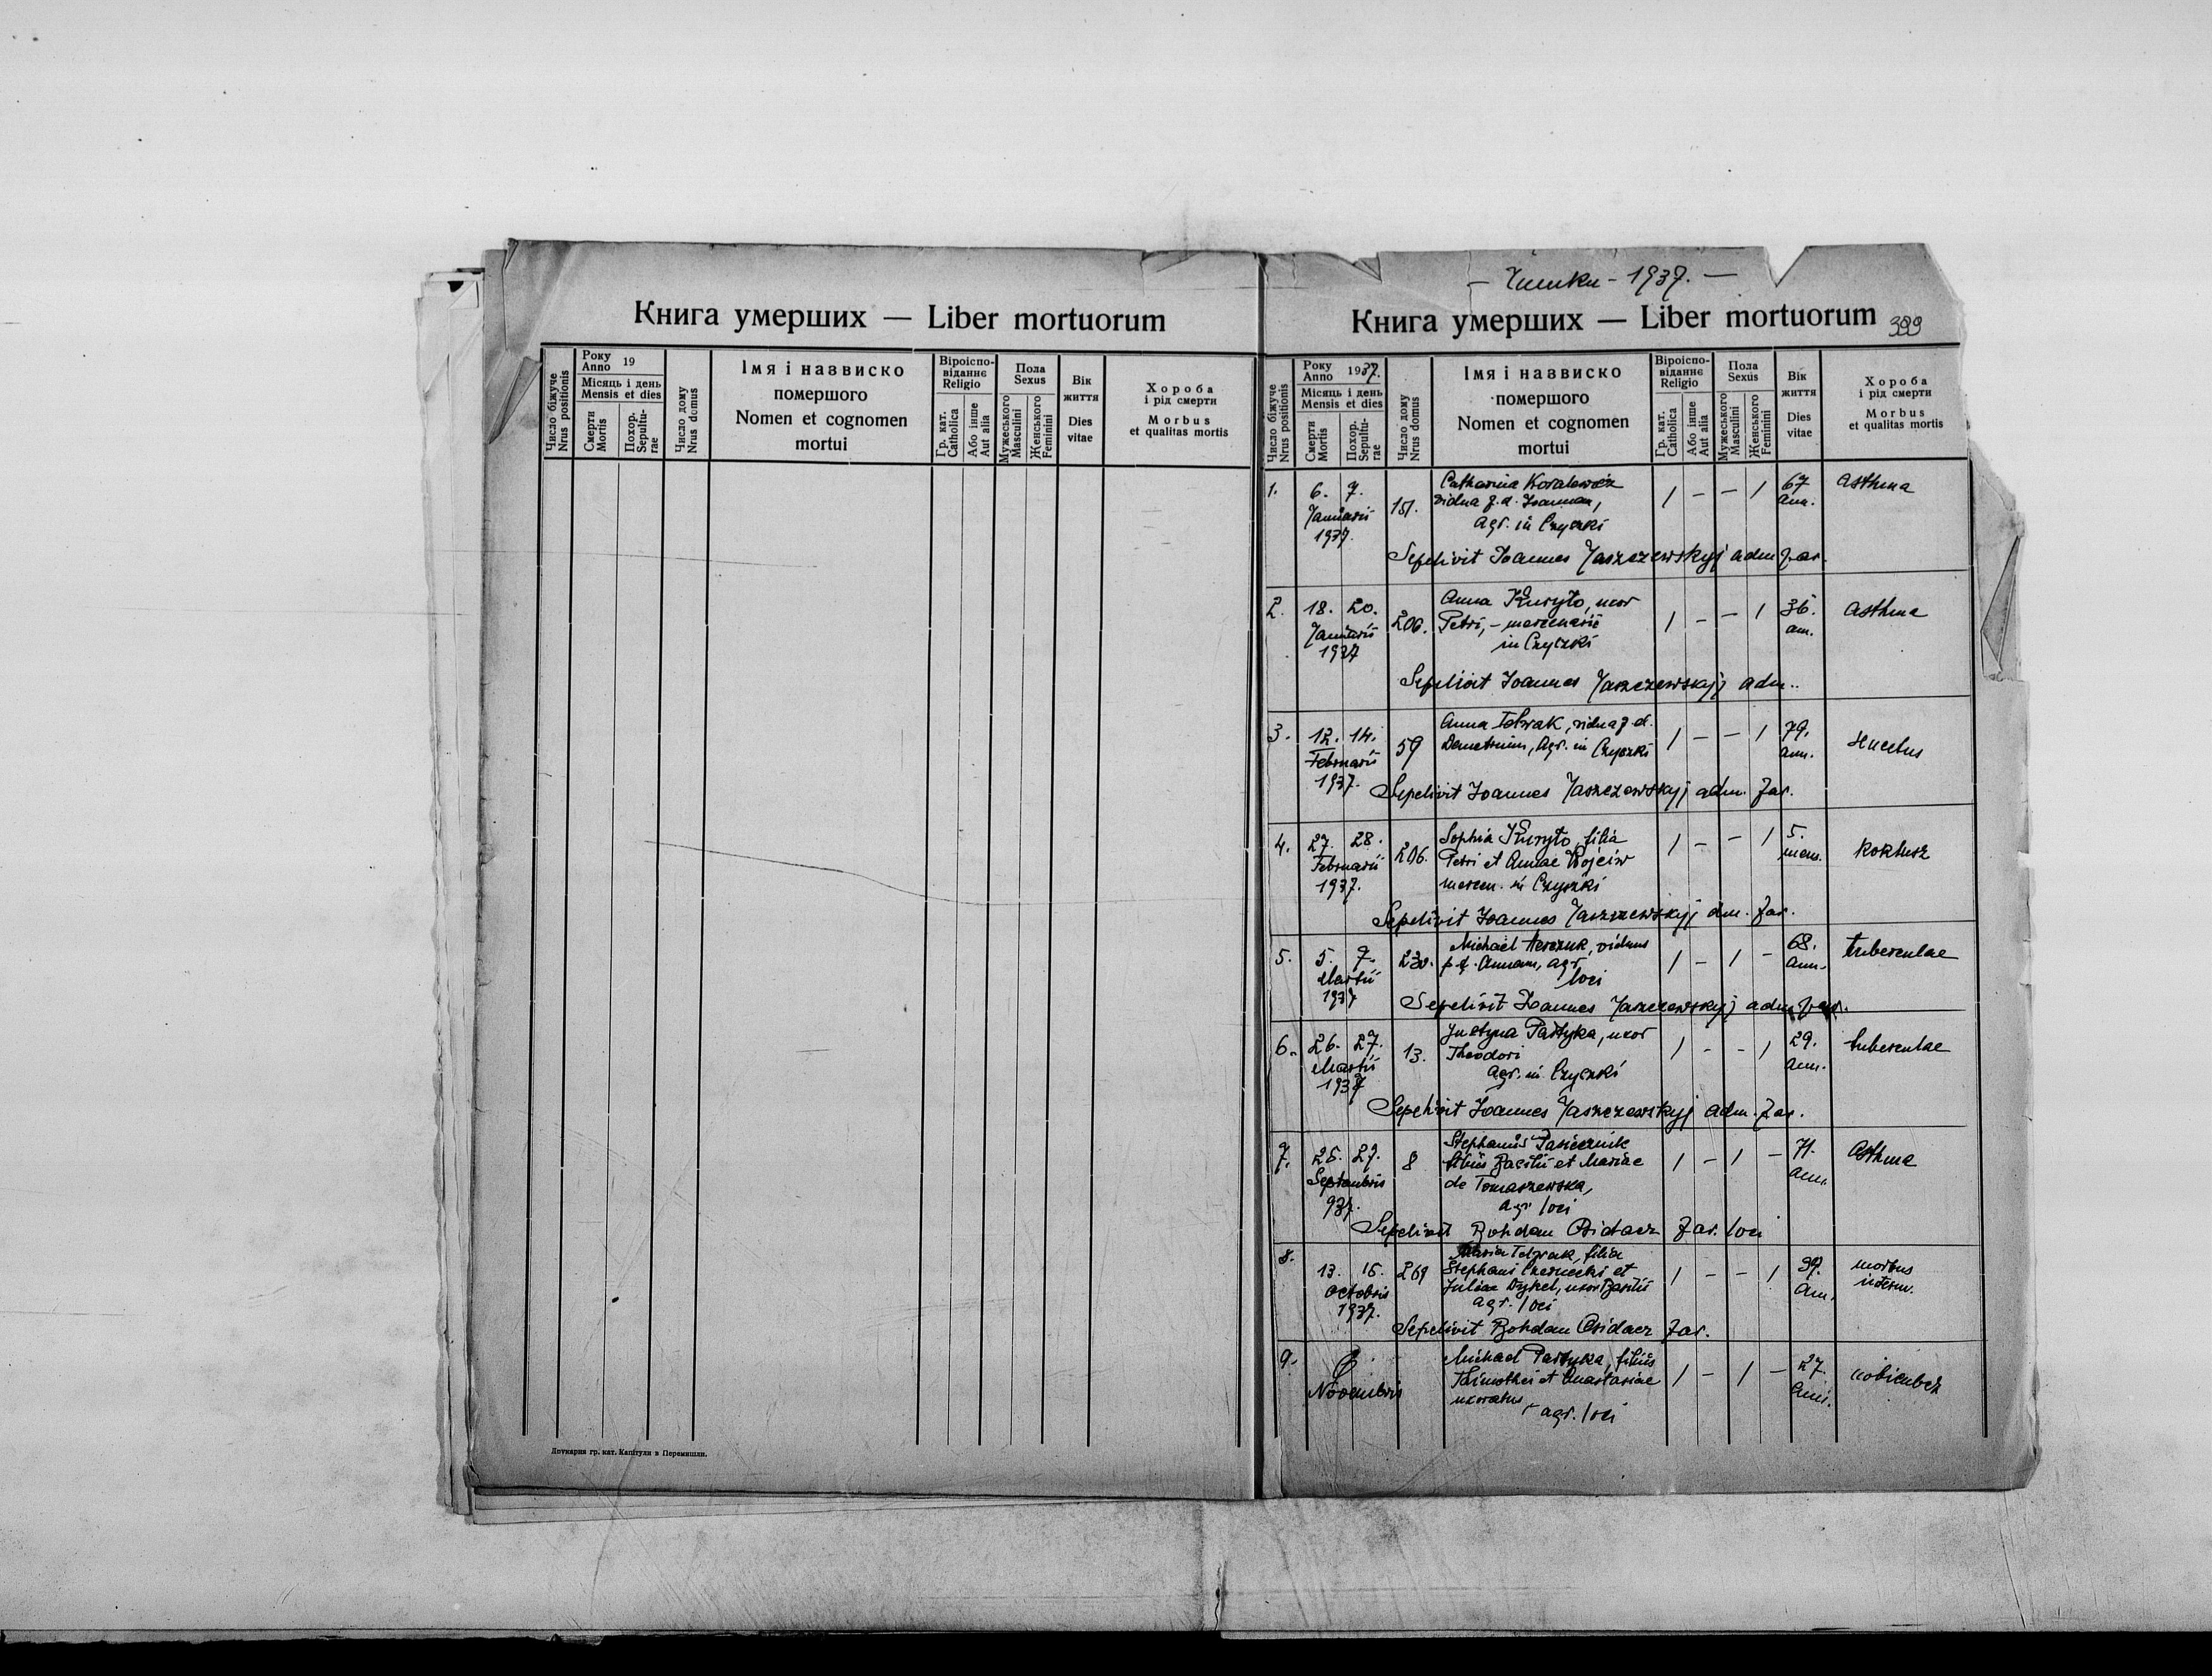 Книга умерших — Liber mortuorum
Число біжуче
Nrus positionis
Року
Anno 19
Місяць і день
Mensis et dies
Смерти
Mortis
Похор.
Sepultu-
rae
Число дому
Nrus domus
Імя і назвиско
помершого
Nomen et cognomen
mortui
Віроіспо-
віданнє
Religio
Гр. кат.
Catholica
Або інше
Aut alia
Пола
Sexus
Мужеського
Masculini
Женського
Feminini
Вік
життя
Dies
vitae
Хороба
і рід смерти
Morbus
et qualitas mortis
Друкарня гр. кат. Капітули в Перемишли.
— Чишки - 1937. —
Книга умерших — Liber mortuorum 399
Число біжуче
Nrus positionis
Року
Anno 1937.
Місяць і день
Mensis et dies
Смерти
Mortis
Похор.
Sepultu-
rae
Число дому
Nrus domus
Імя і назвиско
помершого
Nomen et cognomen
mortui
Віроіспо-
віданнє
Religio
Гр. кат.
Catholica
Або інше
Aut alia
Пола
Sexus
Мужеського
Masculini
Женського
Feminini
Вік
життя
Dies
vitae
Хороба
і рід смерти
Morbus
et qualitas mortis
1. 6. 7. Januarii 1937. 151. Catharina Kovalewicz 1 - - 1 67 ann. Asthma
vidua p. d. Joannem,
agr. in Czyszki
Sepelivit Joannes Jaszczewskyj adm par.
2. 18. 20. Januarii 1937 206. Anna Kuryło, uxor 1 - - 1 36. ann. Asthma
Petri, - mercenarii
in Czyszki
Sepelivit Joannes Jaszczewskyj adm..
3. 12. 14. Februarii 1937. 59 Anna Telwak, vidua p d. 1 - - 1 79. ann.
Demetrium, agr. in Czyszki
Sepelivit Joannes Jaszczewskyj adm. par.
4. 27. 28. Februarii 1937. 206. Sophia Kuryło, filia 1 - - 1 5. mens. koklusz
Petri et Annae Wojciw
mercen. in Czyszki
Sepelivit Joannes Jaszczewskyj dm. par.
5. 5. 7. Martii 1937 230. Michael viduus 1 - 1 - 68. ann. tuberculae
p. d. Annam, agr.
loci
Sepelivit Joannes Jaszczewskyj adm par.
6. 26. 27. Martii 1937 13. Justyna Pastyka, uxor 1 - - 1 29. ann. tuberculae
Theodori
agr. in Czyszki
Sepelivit Joannes Jaszczewskyj adm. par.
7. 25. 27. Septembris 937. 8 Stephanus Pasicznik 1 - 1 - 71. ann. Asthma
filius Basilii et Mariae
de Tomaszewska,
agr loci
Sepelivit Bohdan Osidacz par. loci
8. 13. 15. Octobris 1937. 269 Maria Telwak, filia 1 - - 1 39. ann. morbus intern.
Stephani Czernecki et
Juliae Dykel, uxor Basilii
agr. loci
Sepelivit Bohdan Osidacz par.
9. Novembris Michael Pastyka, filius 1 - 1 - 27. ann.
Thimothei et Anastasiae
uxoratus
agr. loci